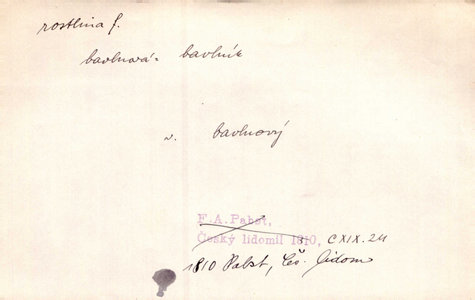 rostlina f.
bavlnová = bavlník
v. bavlnový
F. A. Pabst,
Český lidomil 1810, C XIX. 24
1810 Pabst, Čes. lidom